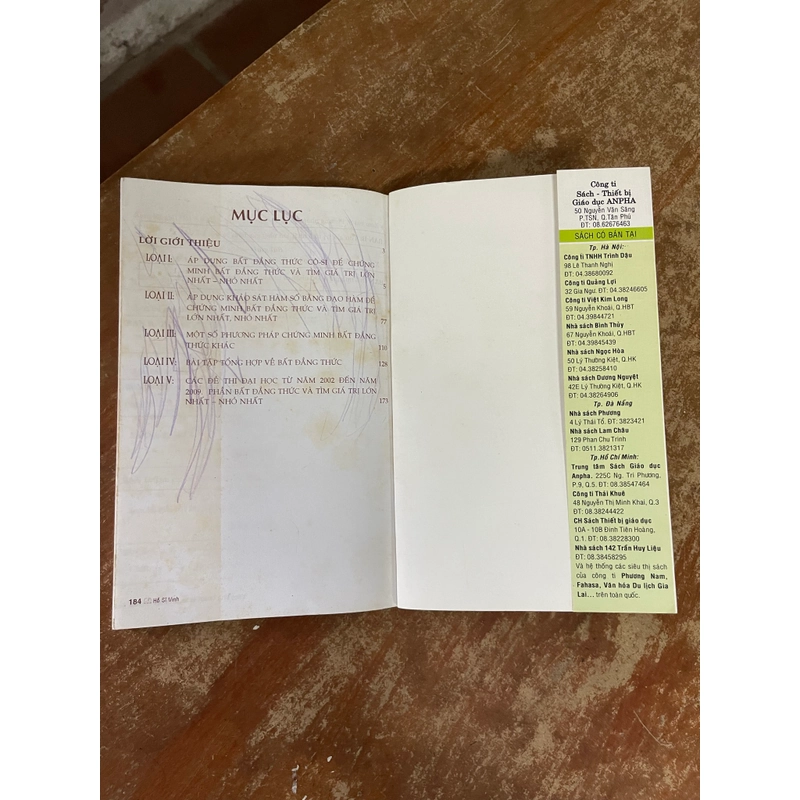 MỤC LỤC
LỜI GIỚI THIỆU 5
LOẠI I: ÁP DỤNG BẤT ĐẲNG THỨC CÔ-SI ĐỂ CHỨNG
MINH BẤT ĐẲNG THỨC VÀ TÌM GIÁ TRỊ LỚN
NHẤT – NHỎ NHẤT 5
LOẠI II: ÁP DỤNG KHẢO SÁT HÀM SỐ BẰNG ĐẠO HÀM ĐỂ
CHỨNG MINH BẤT ĐẲNG THỨC VÀ TÌM GIÁ TRỊ
LỚN NHẤT, NHỎ NHẤT 77
LOẠI III: MỘT SỐ PHƯƠNG PHÁP CHỨNG MINH BẤT ĐẲNG
THỨC KHÁC 110
LOẠI IV: BÀI TẬP TỔNG HỢP VỀ BẤT ĐẲNG THỨC 128
LOẠI V: CÁC ĐỀ THI ĐẠI HỌC TỪ NĂM 2002 ĐẾN NĂM
2009. PHẦN BẤT ĐẲNG THỨC VÀ TÌM GIÁ TRỊ LỚN
NHẤT – NHỎ NHẤT 173
184 Hồ Sĩ Vinh
Công ti
Sách - Thiết bị
Giáo dục ANPHA
50 Nguyễn Văn Săng
P.TSN, Q.Tân Phú
ĐT: 08.62676463
SÁCH CÓ BÁN TẠI
Tp. Hà Nội:
Công ti TNHH Trinh Dậu
98 Lê Thanh Nghị
ĐT: 04.38680092
Công ti Quảng Lợi
32 Gia Ngư. ĐT: 04.38246605
Công ti Việt Kim Long
59 Nguyễn Khoái, Q.HBT
ĐT: 04.39844721
Nhà sách Bình Thủy
67 Nguyễn Khoái, Q.HBT
ĐT: 04.39845439
Nhà sách Ngọc Hòa
50 Lý Thường Kiệt, Q.HK
ĐT: 04.38258410
Nhà sách Dương Nguyệt
42E Lý Thường Kiệt, Q.HK
ĐT: 04.38264906
Tp. Đà Nẵng
Nhà sách Phương
4 Lý Thái Tổ. ĐT: 3823421
Nhà sách Lam Châu
129 Phan Chu Trinh
ĐT: 0511.3821317
Tp.Hồ Chí Minh:
Trung tâm Sách Giáo dục
Anpha. 225C Ng. Tri Phương,
P.9, Q.5. ĐT: 08.38547464
Công ti Thái Khuê
48 Nguyễn Thị Minh Khai, Q.3
ĐT: 08.38244422
CH Sách Thiết bị giáo dục
10A - 10B Đinh Tiên Hoàng,
Q.1. ĐT: 08.38228300
Nhà sách 142 Trần Huy Liệu
ĐT: 08.38458295
Và hệ thống các siêu thị sách
của công ti Phương Nam,
Fahasa, Văn hóa Du lịch Gia
Lai... trên toàn quốc.